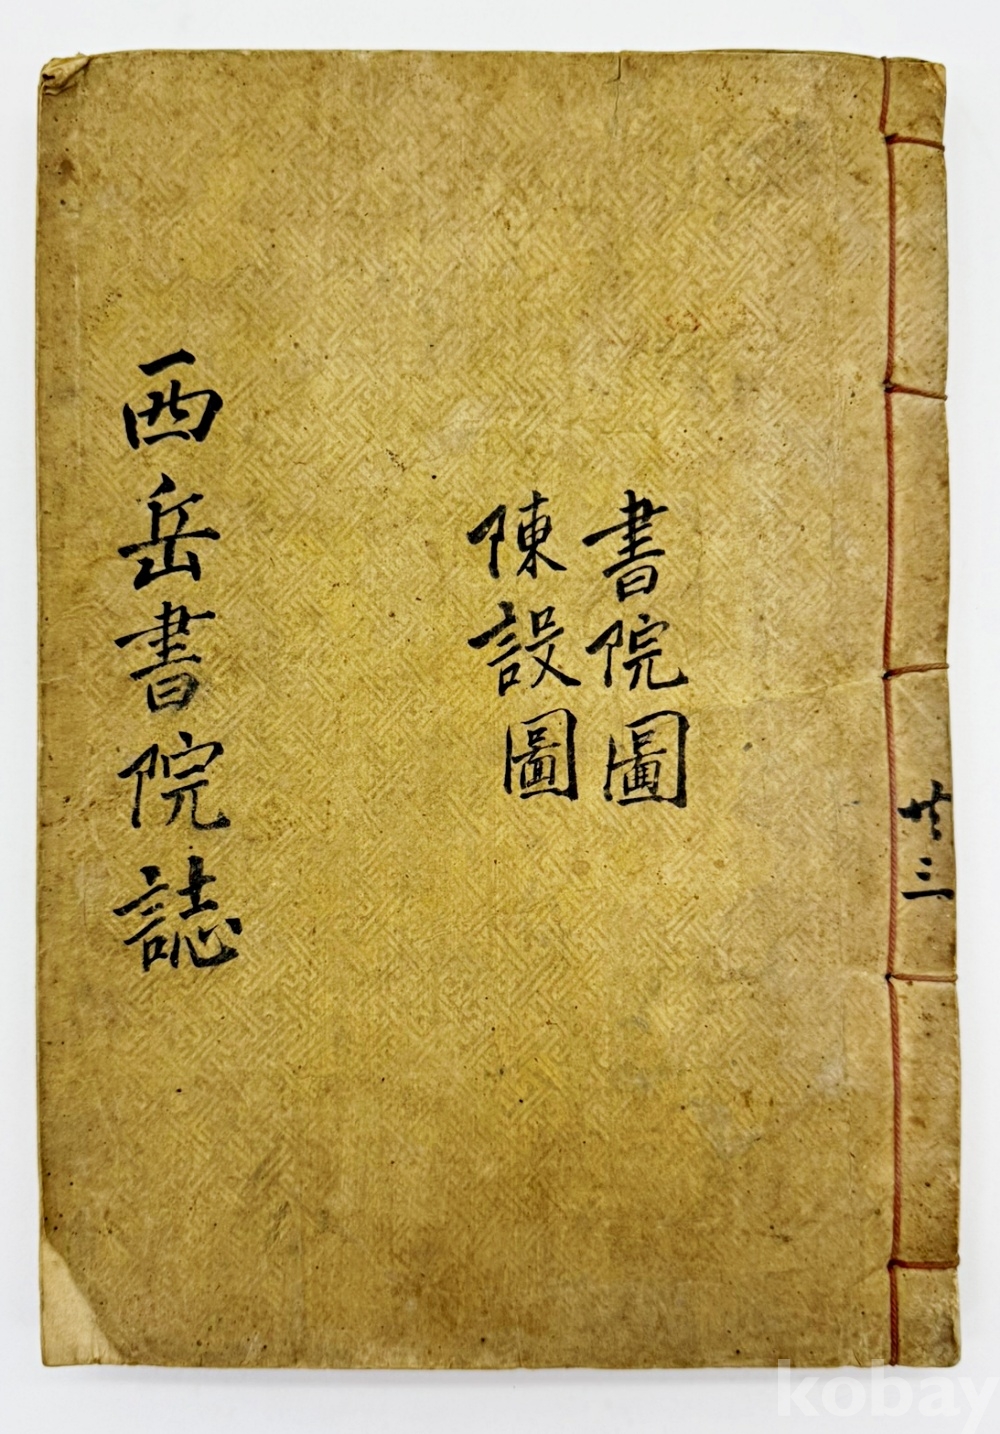 西岳書院誌
書院圖
陳設圖
廿三
kobay